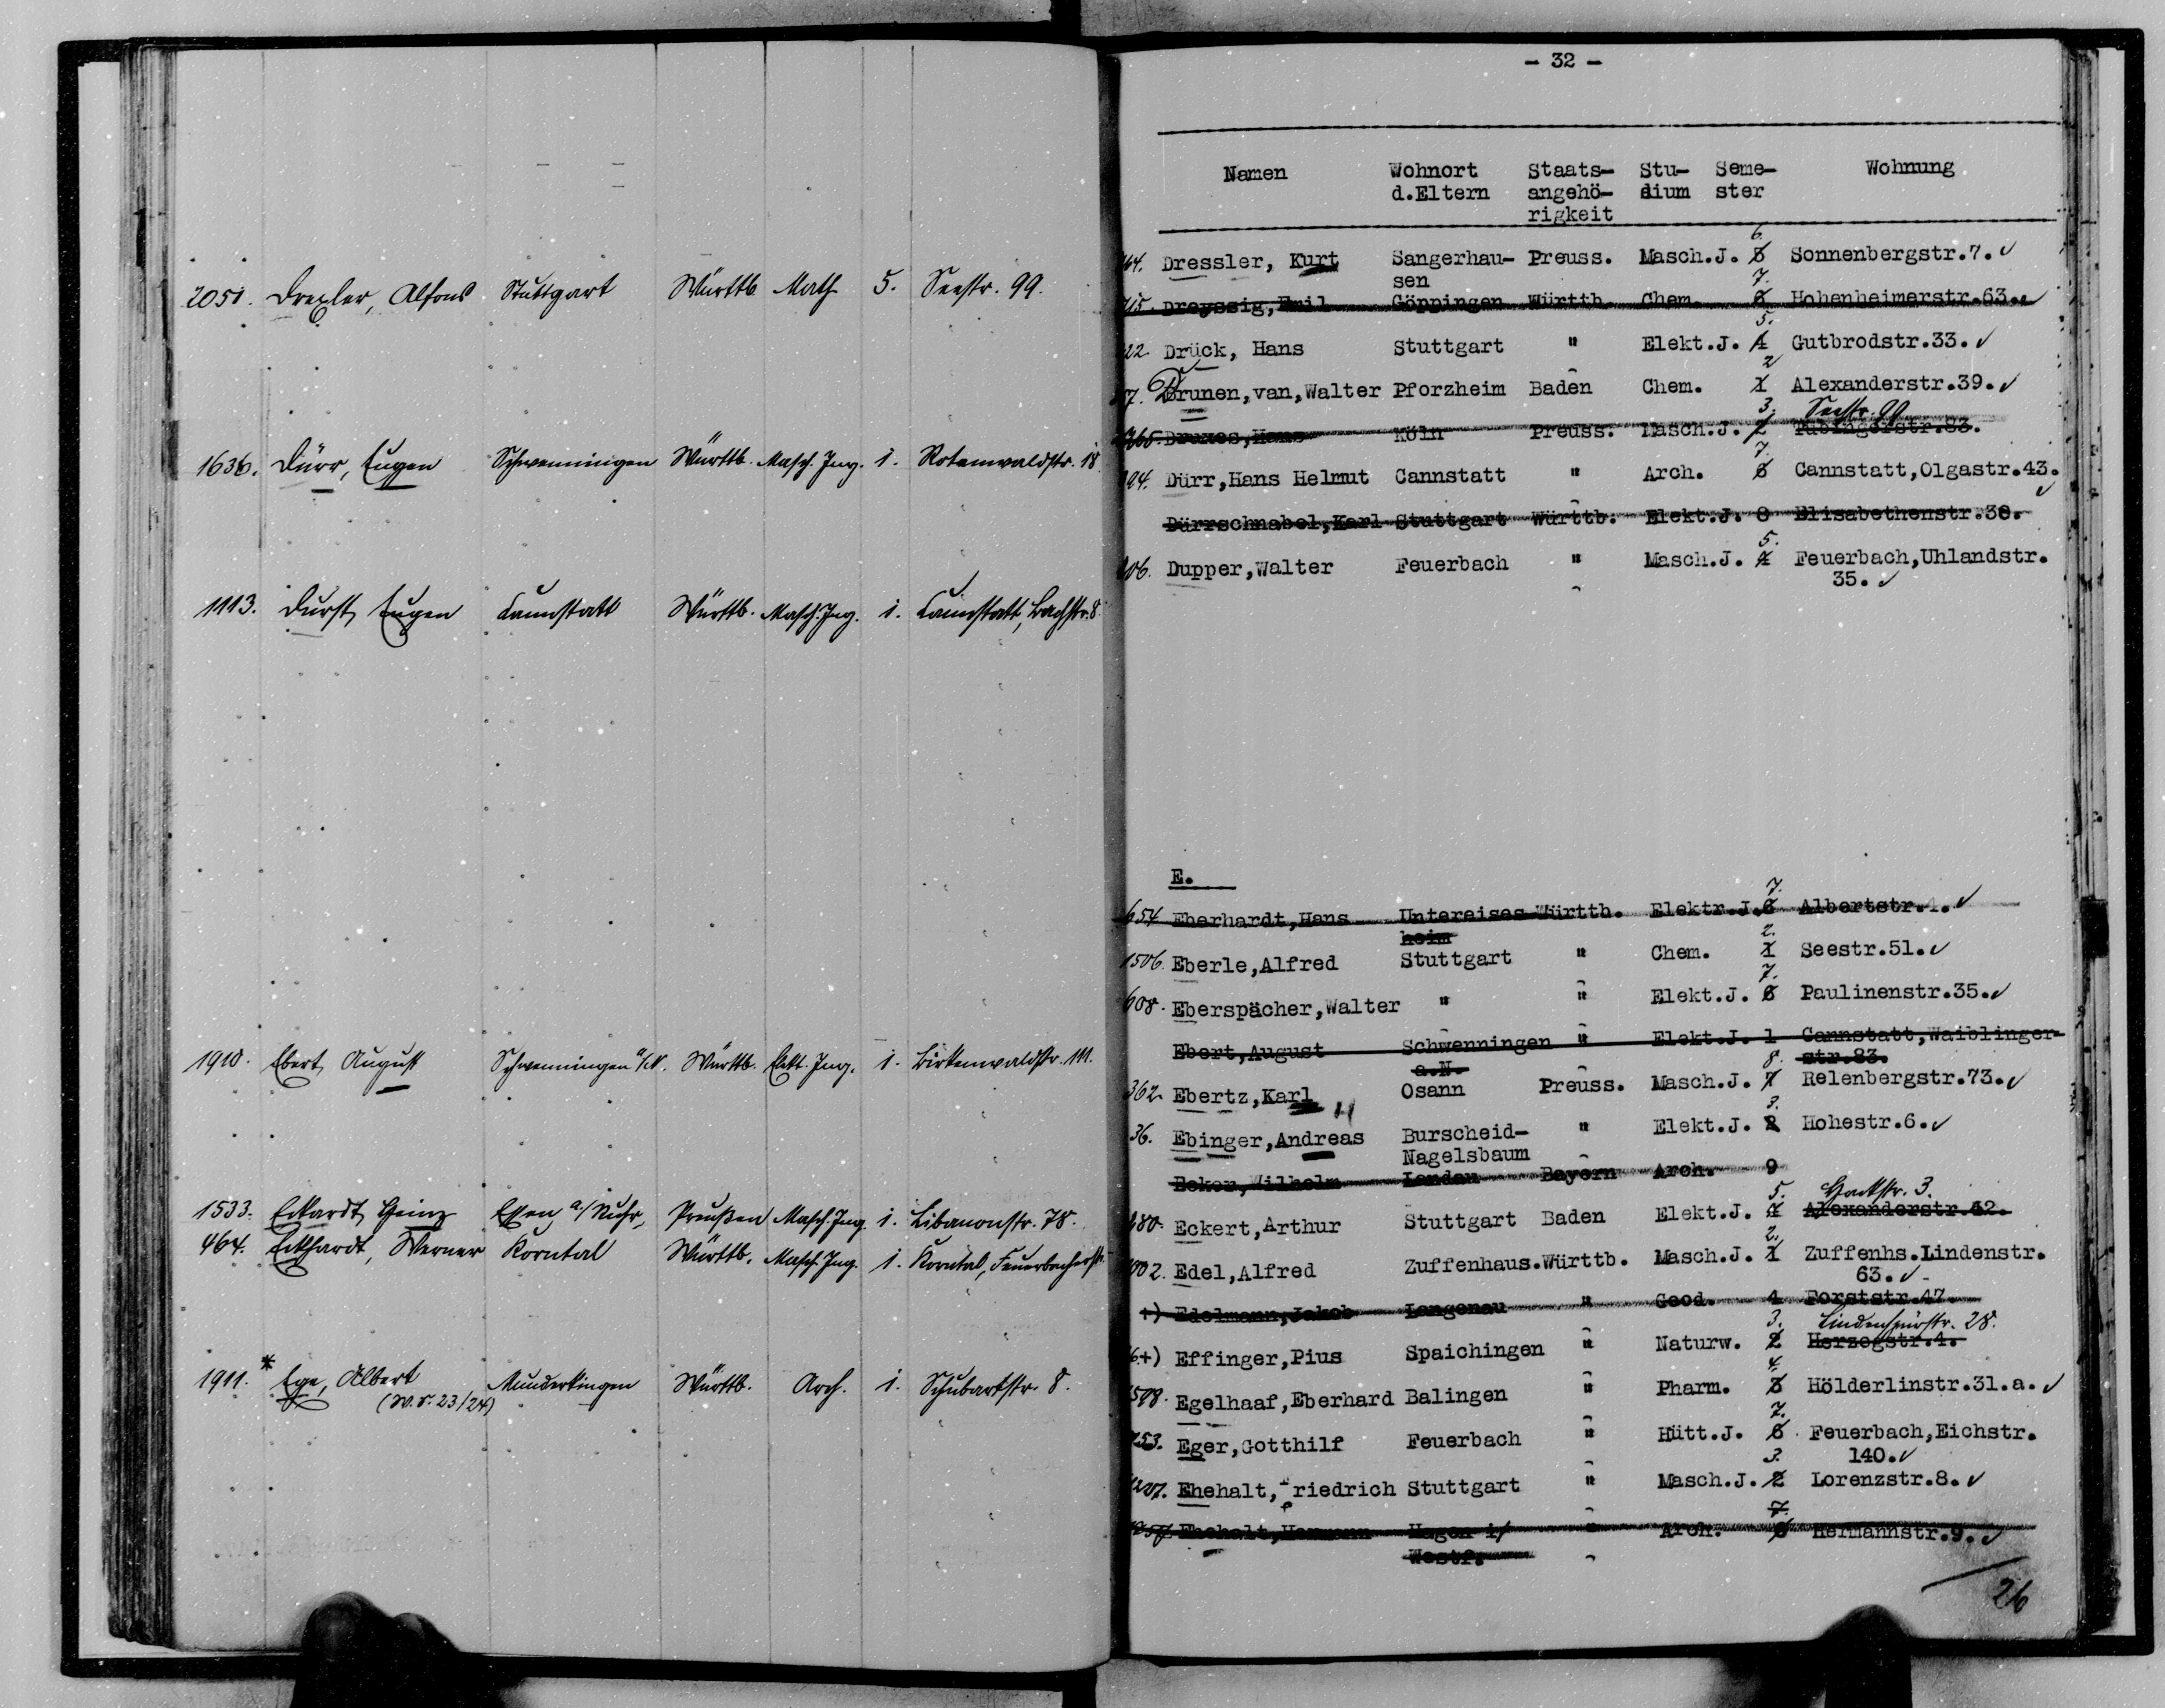 2051. Drexler, Alfons Stuttgart Württb. Math. 5. Seestr. 99.
1636. Dürr, Eugen Schwenningen Württb. Masch. Ing. 1. Rotenwaldstr. 18
1113. Durst, Eugen Cannstatt Württb. Masch. Ing. 1. Cannstatt, Bachstr. 8.
1910. Ebert, August Schwenningen a/N. Württb. Elekt. Ing. 1. Birkenwaldstr. 111.
1533. Eckardt, Heinz Essen a./Ruhr, Preußen Masch. Ing. 1. Libanonstr. 78.
464. Eckhardt, Werner Korntal Württb. Masch. Ing. 1. Korntal, Feuerbacherstr.
1911. * Ege, Albert Munderkingen Württb. Arch. 1. Schubartstr. 8.
(W.S. 23/24)
- 32 -
Namen Wohnort Staats- Stu- Seme- Wohnung
d.Eltern angehö- dium ster
rigkeit
6.
64. Dressler, Kurt Sangerhau- Preuss. Masch.J. 5 Sonnenbergstr.7. ✓
sen 7.
15. Dreyssig, Emil Göppingen Württb. Chem. 6 Hohenheimerstr.63. ✓
5.
22. Drück, Hans Stuttgart " Elekt.J. 4 Gutbrodstr.33. ✓
2
7. Drunen,van,Walter Pforzheim Baden Chem. 1 Alexanderstr.39. ✓
3. Seestr. 99
365. Druxes,Hans Köln Preuss. Masch.J. 2 Tübingerstr.83.
7.
94. Dürr,Hans Helmut Cannstatt " Arch. 6 Cannstatt,Olgastr.43. ✓
Dürrschnabel,Karl Stuttgart Württb. Elekt.J. 8 Elisabethenstr.38.
5.
06. Dupper,Walter Feuerbach " Masch.J. 4 Feuerbach,Uhlandstr.
35. ✓
E.
7.
654 Eberhardt,Hans Untereises- Württb. Elektr.J. 6 Albertstr.4. ✓
heim 2.
1506. Eberle,Alfred Stuttgart " Chem. 1 Seestr.51. ✓
7.
608. Eberspächer,Walter " " Elekt.J. 6 Paulinenstr.35. ✓
Ebert,August Schwenningen " Elekt.J. 1 Cannstatt,Waiblinger-
a.N. 8. str.83.
362. Ebertz,Karl Osann Preuss. Masch.J. 7 Relenbergstr.73. ✓
3.
36. Ebinger,Andreas Burscheid- " Elekt.J. 2 Hohestr.6. ✓
Nagelsbaum
Ecker,Wilhelm Landau Bayern Arch. 9
5. Hackstr. 3.
180. Eckert,Arthur Stuttgart Baden Elekt.J. 4 Alexanderstr.62.
2.
002. Edel,Alfred Zuffenhaus. Württb. Masch.J. 1 Zuffenhs.Lindenstr.
63. ✓
+) Edelmann,Jakob Langenau " Geod. 4 Forststr.47
3. Lindenspürstr. 28.
+) Effinger,Pius Spaichingen " Naturw. 2 Herzogstr.4.
4.
598. Egelhaaf,Eberhard Balingen " Pharm. 3 Hölderlinstr.31.a. ✓
7.
753. Eger,Gotthilf Feuerbach " Hütt.J. 6 Feuerbach,Eichstr.
3. 140. ✓
1207. Ehehalt,Friedrich Stuttgart " Masch.J. 2 Lorenzstr.8. ✓
7.
Ehehalt,Hermann Hagen i/ " Arch. 6 Hermannstr.9. ✓
Westf.
26